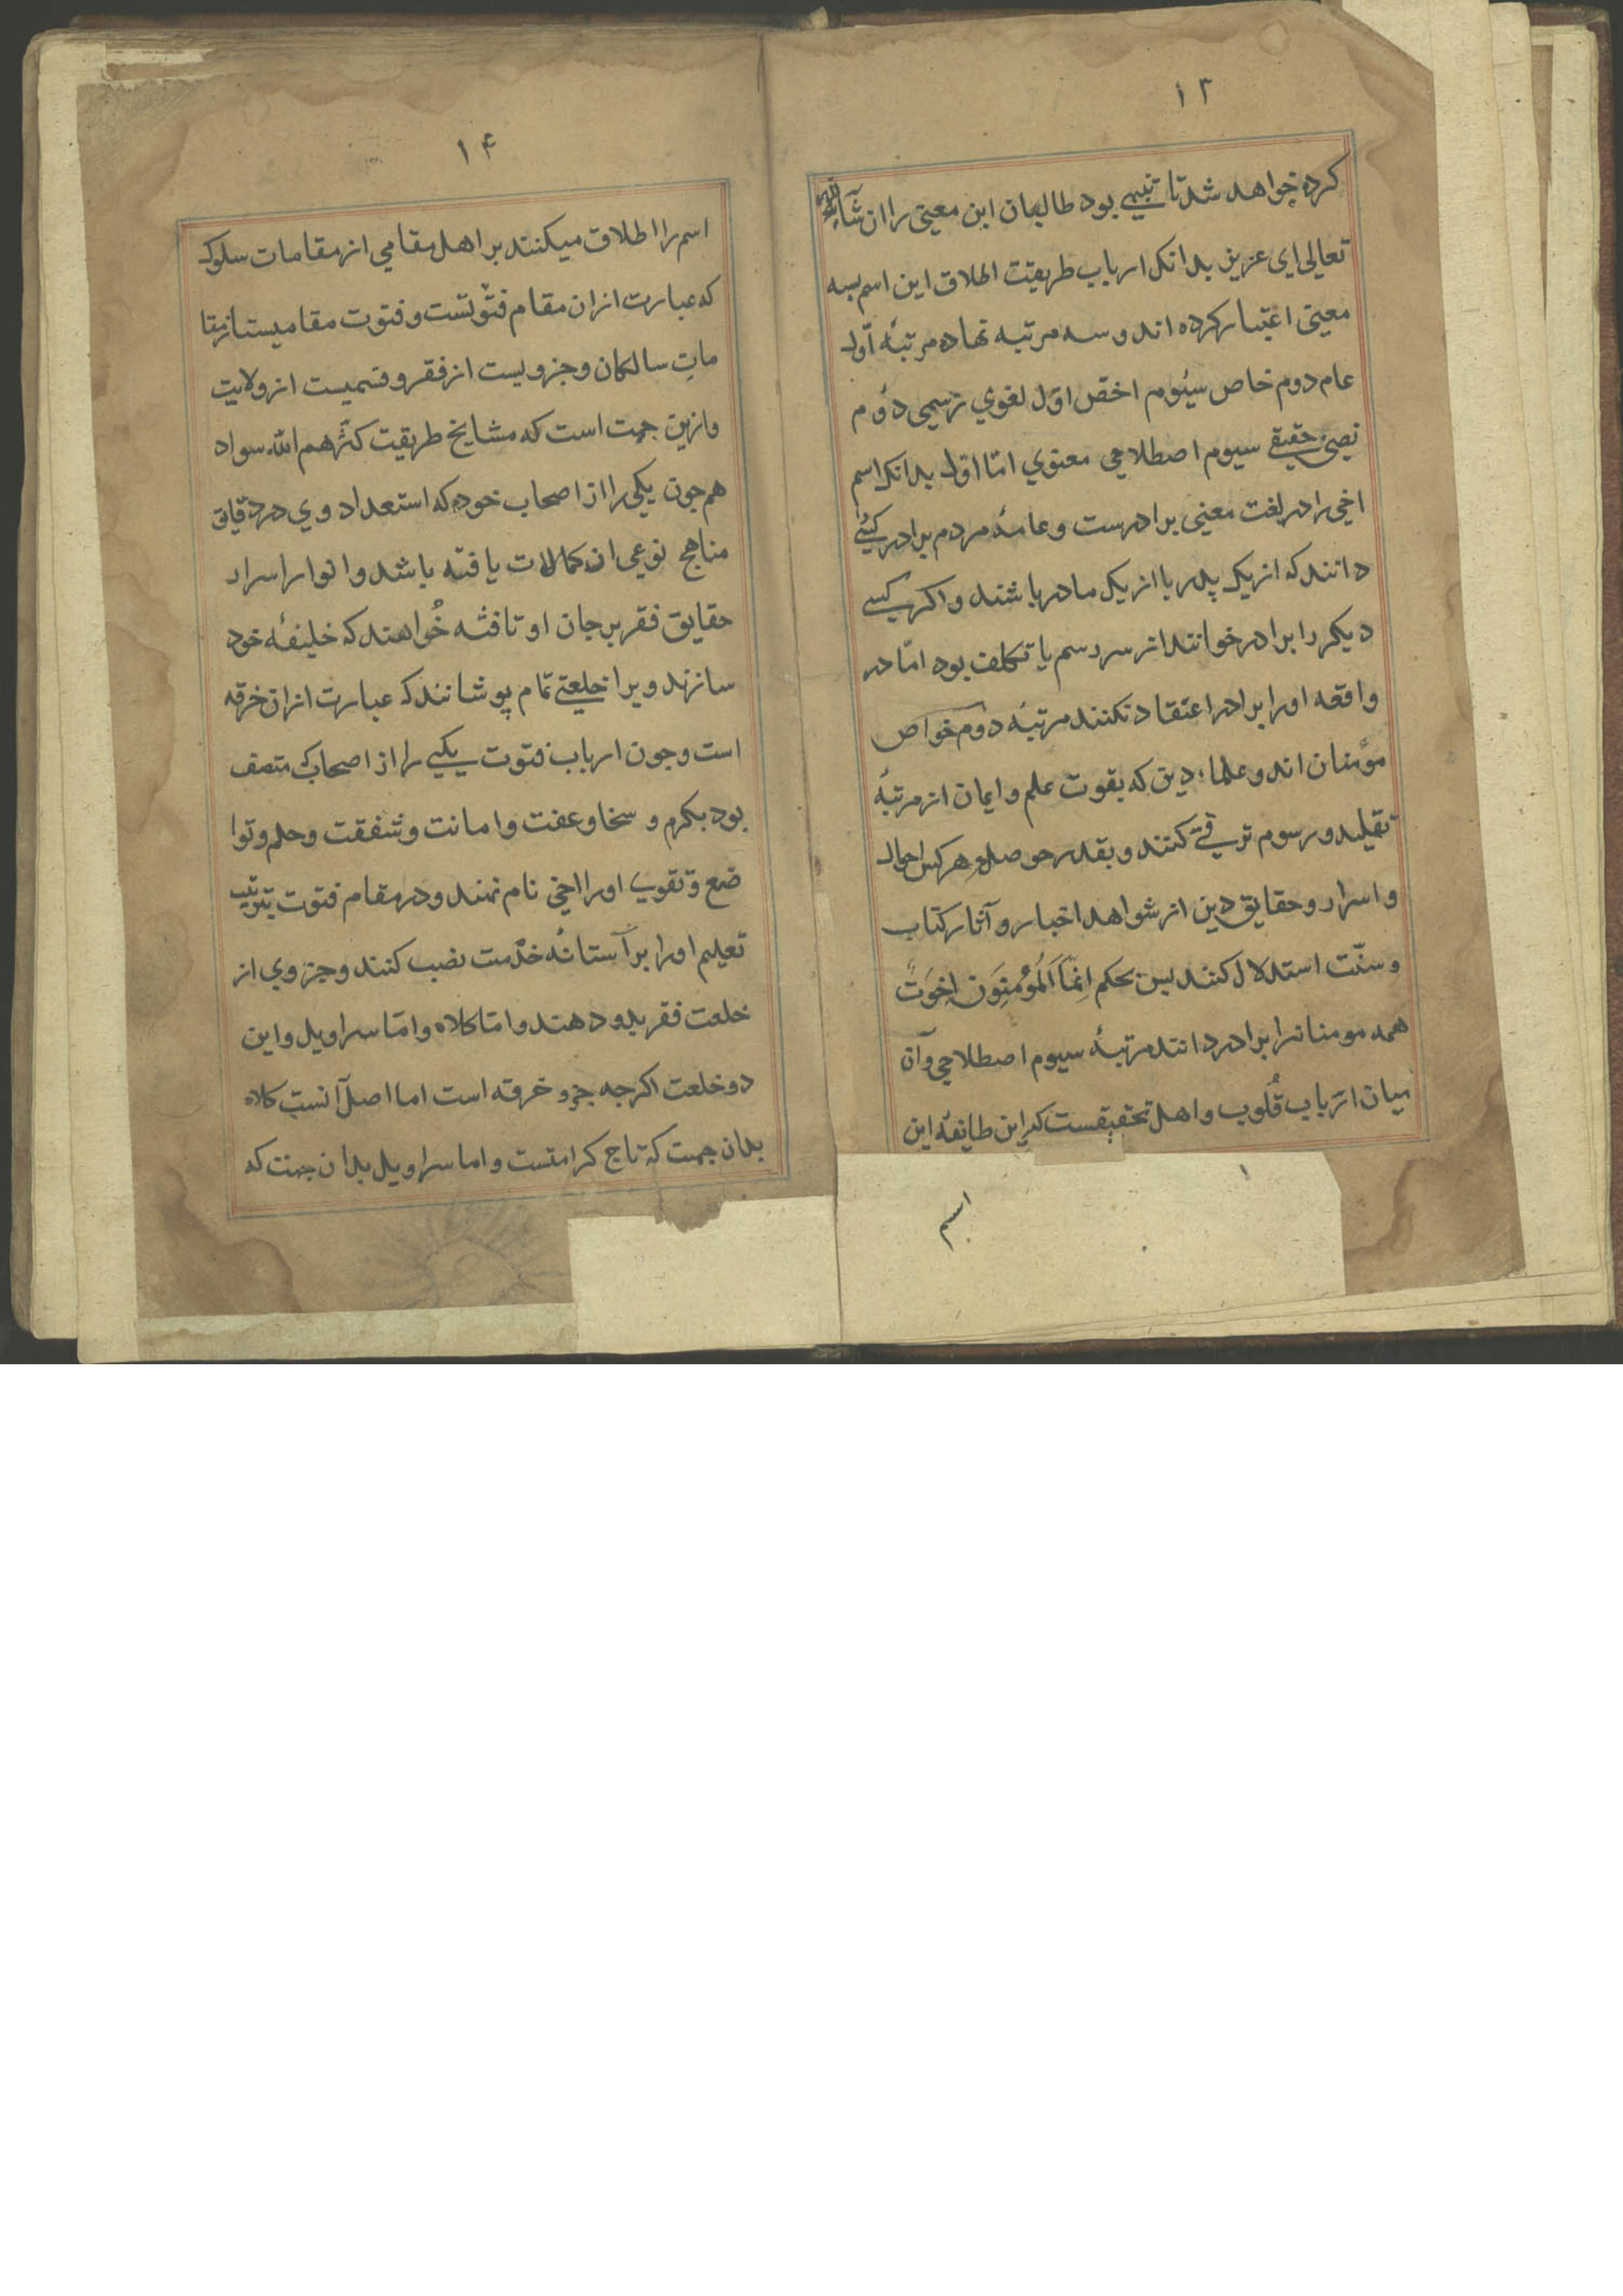 ۱۳
کرده خواهد شد تا تنبیهی بود طالبان این معنی را ان شاء الله
تعالی ای عزیز بدانکه ارباب طریقت اطلاق این اسم بسه
معنی اعتبار کرده اند و سه مرتبه نهاده مرتبهٔ اوّل
عام دوم خاص سیُوم اخصّ اوّل لغوي رسمی دوم
نصی حقیقی سیوم اصطلاحی معنوي امّا اوّل بدانکه اسم
اخی را در لغت معنی برادرست و عامهٔ مردم برادر کسی
دانند که از یک پدر یا از یک مادر باشند و اکر کسی
دیکر را برادر خوانند از سر رسم یا تکلف بود امّا در
واقعه او را برادر اعتقاد نکنند مرتبهٔ دوم خواص
مؤمنان اند و علماء دین که بقوت علم و ایمان از مرتبهٔ
تقلید و رسوم ترقی کنند و بقدر حوصلهٔ هر کس احوال
و اسرار و حقایق دین از شواهد اخبار و آثار کتاب
و سنّت استدلال کنند پس بحکم اِنَّمَا اَلمُؤمِنَونَ اِخوَتٌ
همه مومنانرا برادر دانند مرتبهٔ سیوم اصطلاحی و آن
میان ارباب قُلوب و اهل تحقیقست که این طایفه این
اسم
۱۴
اسم را اطلاق میکنند بر اهل مقامی از مقامات سلوک
که عبارت ازان مقام فتوّتست و فتوت مقامیست از مقا
ماتِ سالکان و جزویست از فقر و قسمیست از ولایت
و ازین جهت است که مشایخ طریقت کثّرهم الله سواد
هم چون یکی را از اصحاب خود که استعداد وي در دقایق
مناهج نوعی از کمالات یافته باشد و انوار اسرار
حقایق فقر بر جان او تافته خُواهند که خلیفهٔ خود
سازند ویرا خلعتی تمام پوشانند که عبارت ازان خرقه
است و چون ارباب فتوت یکی را از اصحاب که متصف
بود بکرم و سخا و عفت و امانت و شفقت و حلم و توا
ضع و تقوی او را اخی نام نهند و در مقام فتوت بترتیب
تعلیم او را بر آستانهٔ خدمت نصب کنند و جزوي از
خلعت فقر بدو دهند و امّا کلاه و امّا سراویل و این
دو خلعت اکرچه جزو خرقه است اما اصل آنست کلاه
بدان جهت که تاج کرامتست و اما سراویل بدان جهت که